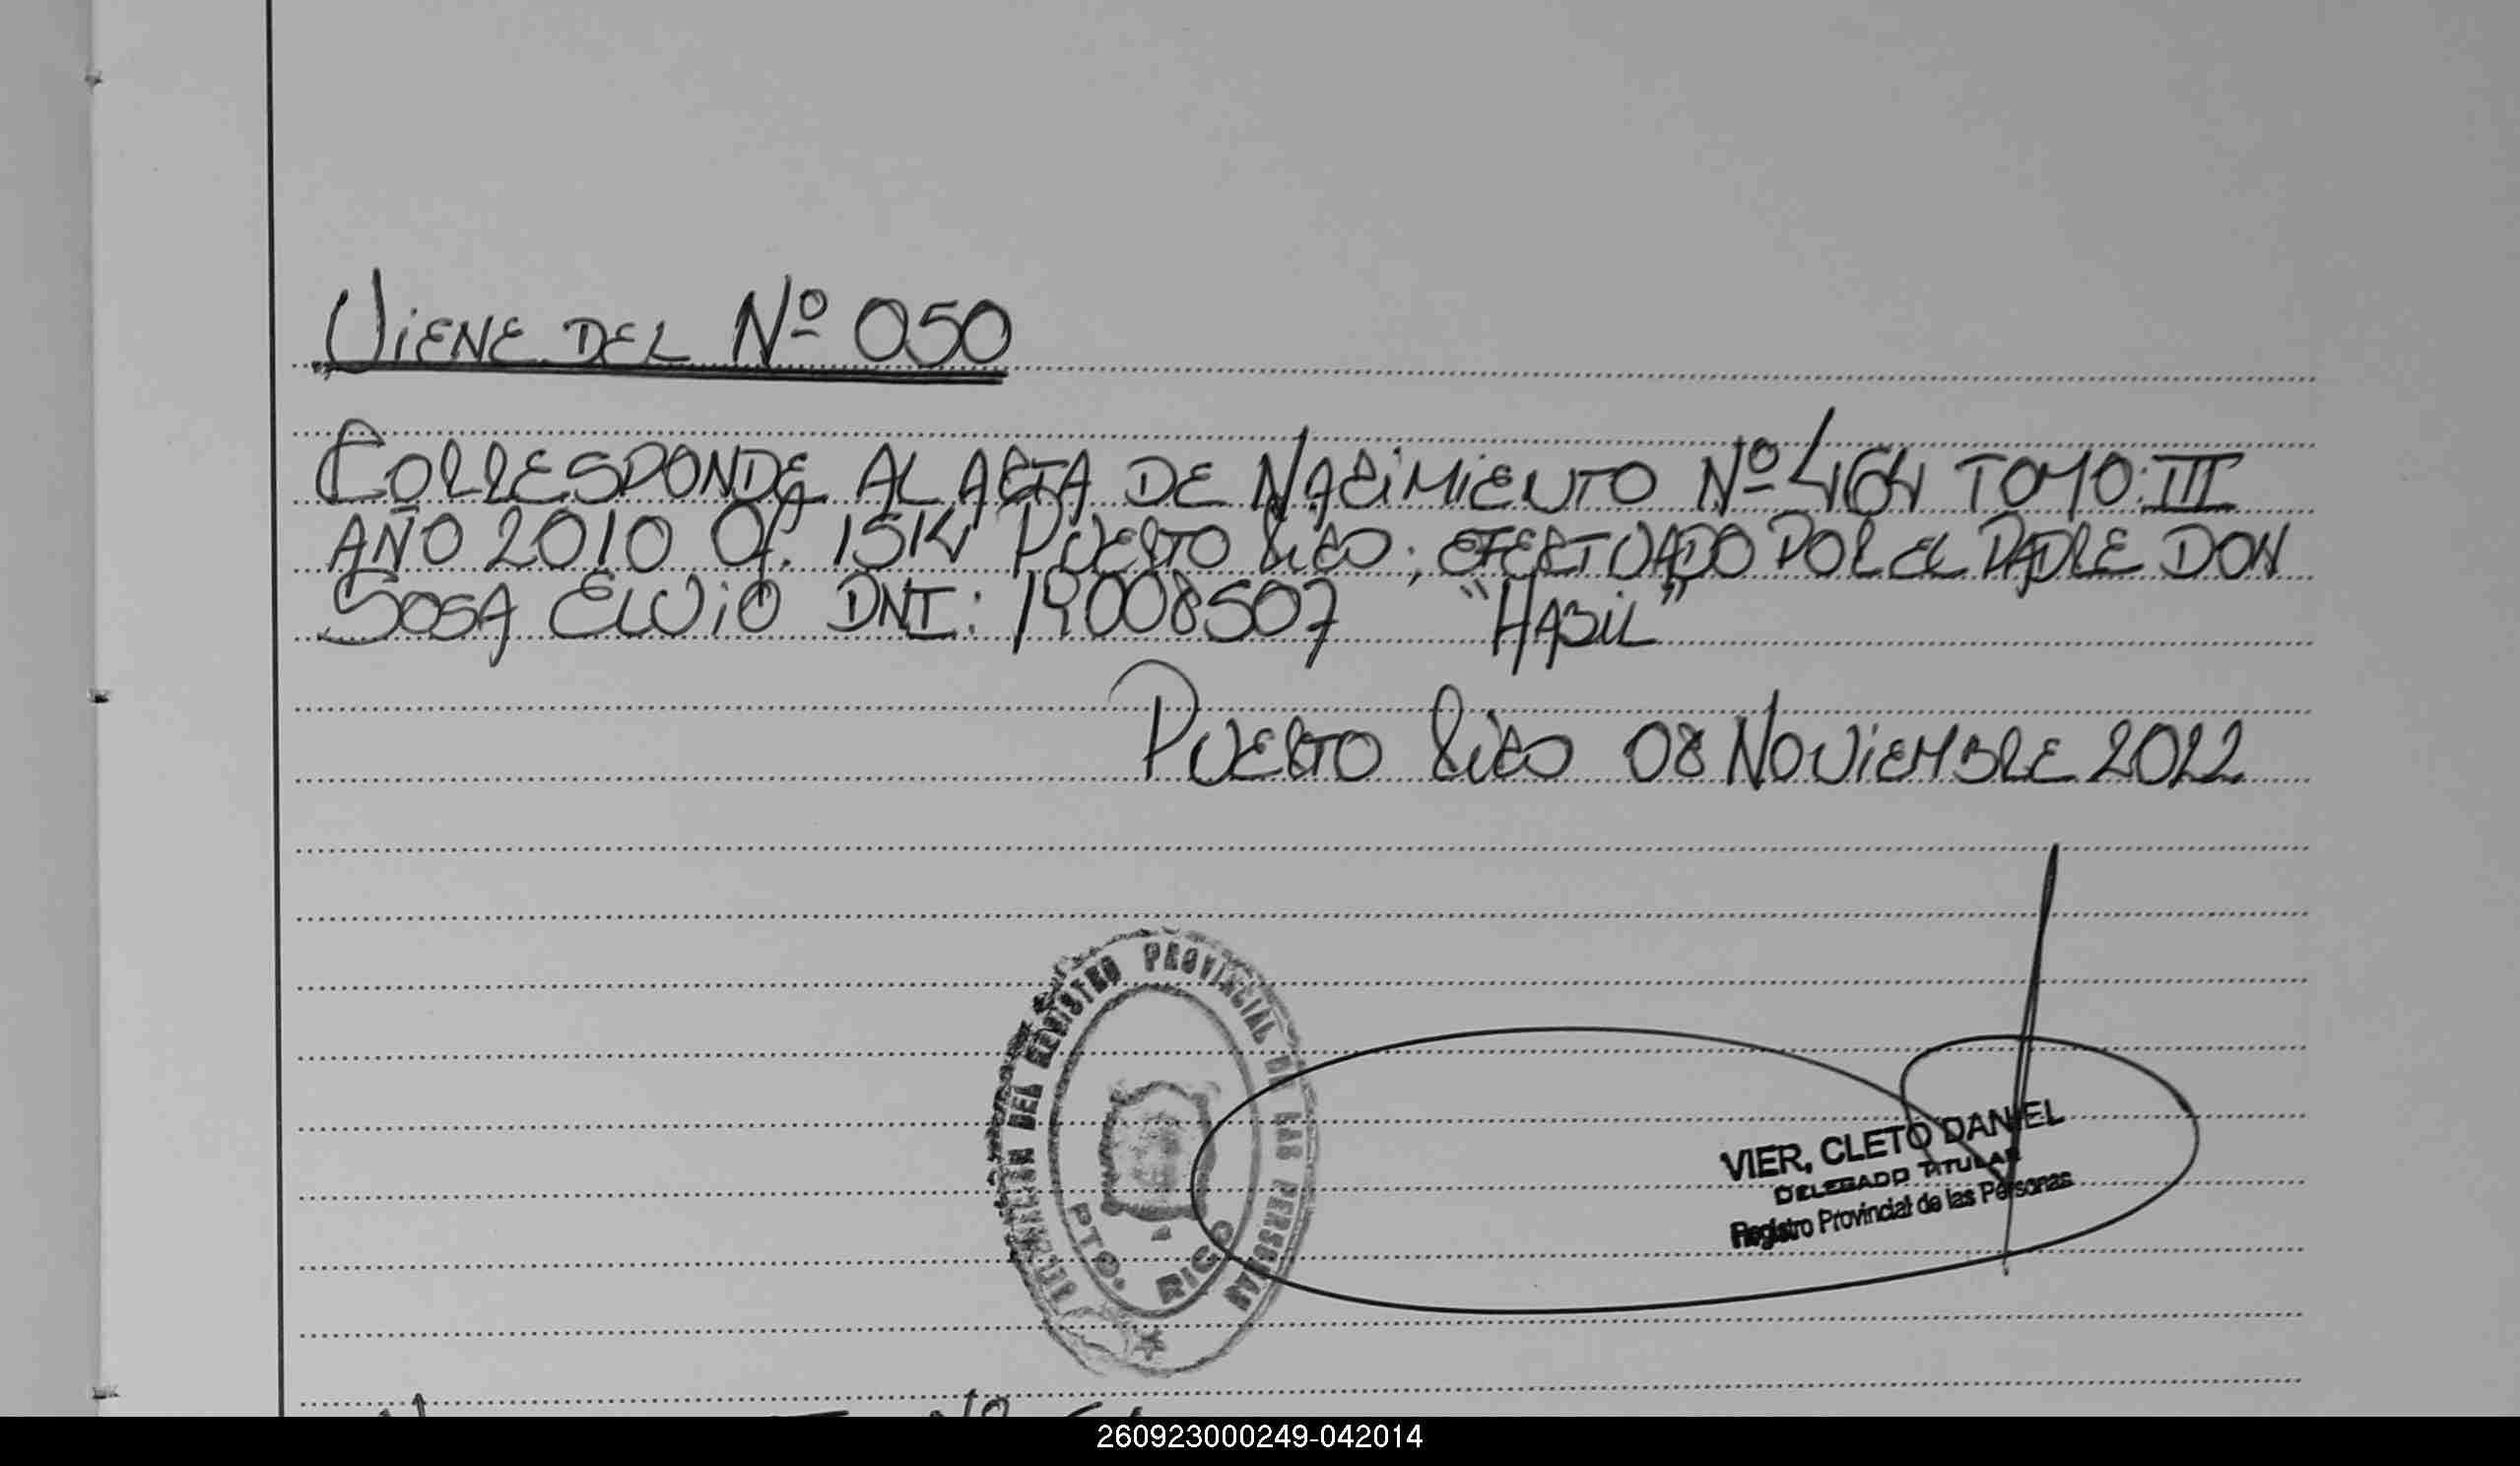 Viene del Nº 050
Corresponde al Acta de Nacimiento Nº 464 Tomo: III
Año 2010 Of. 1514 Puerto Rico; efectuado por el padre don
Sosa Elvio DNI: 19008507 "Habil"
Puerto Rico 08 Noviembre 2022
DEL REGISTRO PROVINCIAL DE LAS PERSONAS
PTO. RICO
VIER, CLETO DANIEL
DELEGADO TITULAR
Registro Provincial de las Personas
260923000249-042014